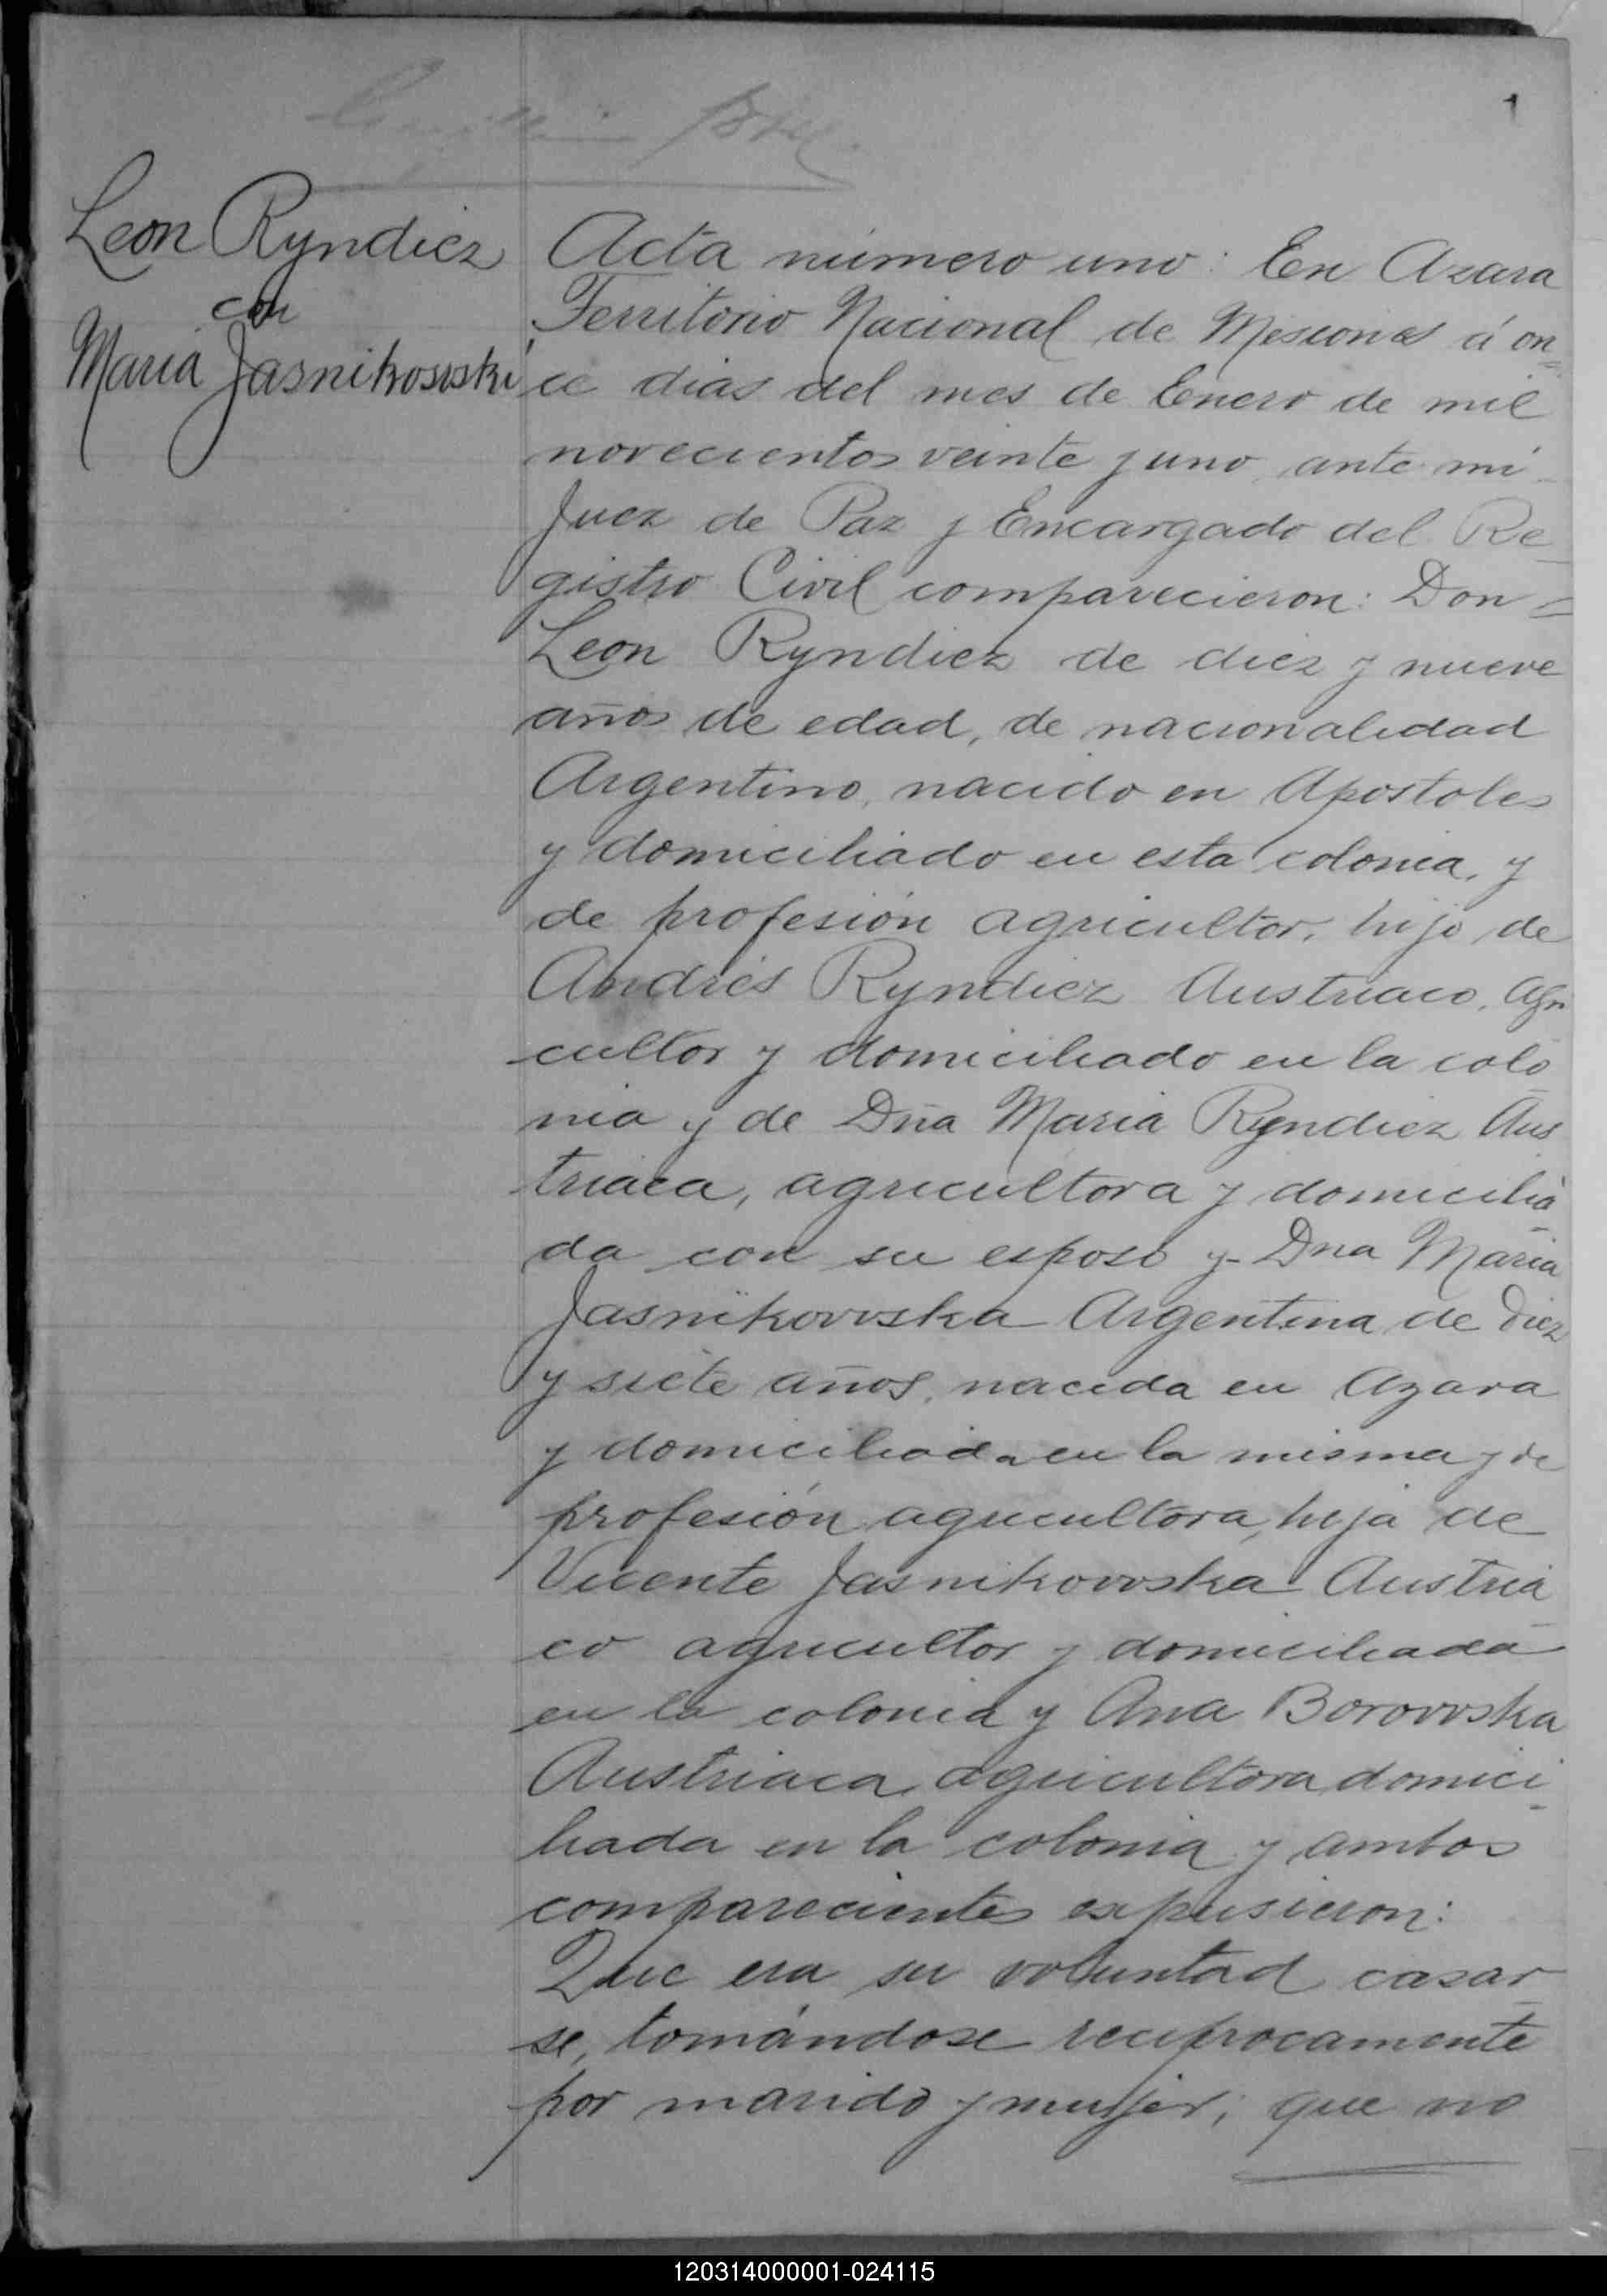 1
Leon Ryndiez
con
Maria Jasnikowski
Acta número uno: En Azara
Territorio Nacional de Misiones á on
ce dias del mes de Enero de mil
novecientos veinte y uno, ante mi
Juez de Paz y Encargado del Re
gistro Civil comparecieron: Don =
Leon Ryndiez de diez y nueve
años de edad, de nacionalidad
Argentino, nacido en Apostoles
y domiciliado en esta colonia, y
de profesión agricultor, hijo de
Andrés Ryndiez Austriaco, Agri
cultor y domiciliado en la colo
nia y de Dña Maria Ryndiez Aus
triaca, agricultora y domicilia
da con su esposo y Dna Maria
Jasnikovvska Argentina de Diez
y siete años, nacida en Azara
y domiciliada en la misma y de
profesión agricultora, hija de
Vicente Jasnikovvska Austria
co agricultor y domiciliada
en la colonia y Ana Borovvska
Austriaca agricultora domici
liada en la colonia y ambos
comparecientes expusieron:
Que era su voluntad casar
se, tomándose reciprocamente
por marido y mujer; que no
120314000001-024115